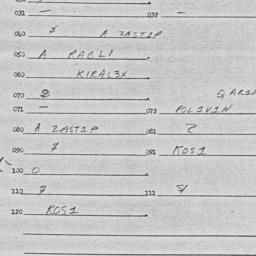 031 — 032 —
040 $ A ZASTIP
050 A RABLI
060 KIRAL3X
070
071 — 072 POLIVIN
080 A ZASTIP 081
090 $ 091 KOS1
100 O
110 $ 111 $
120 KOS1